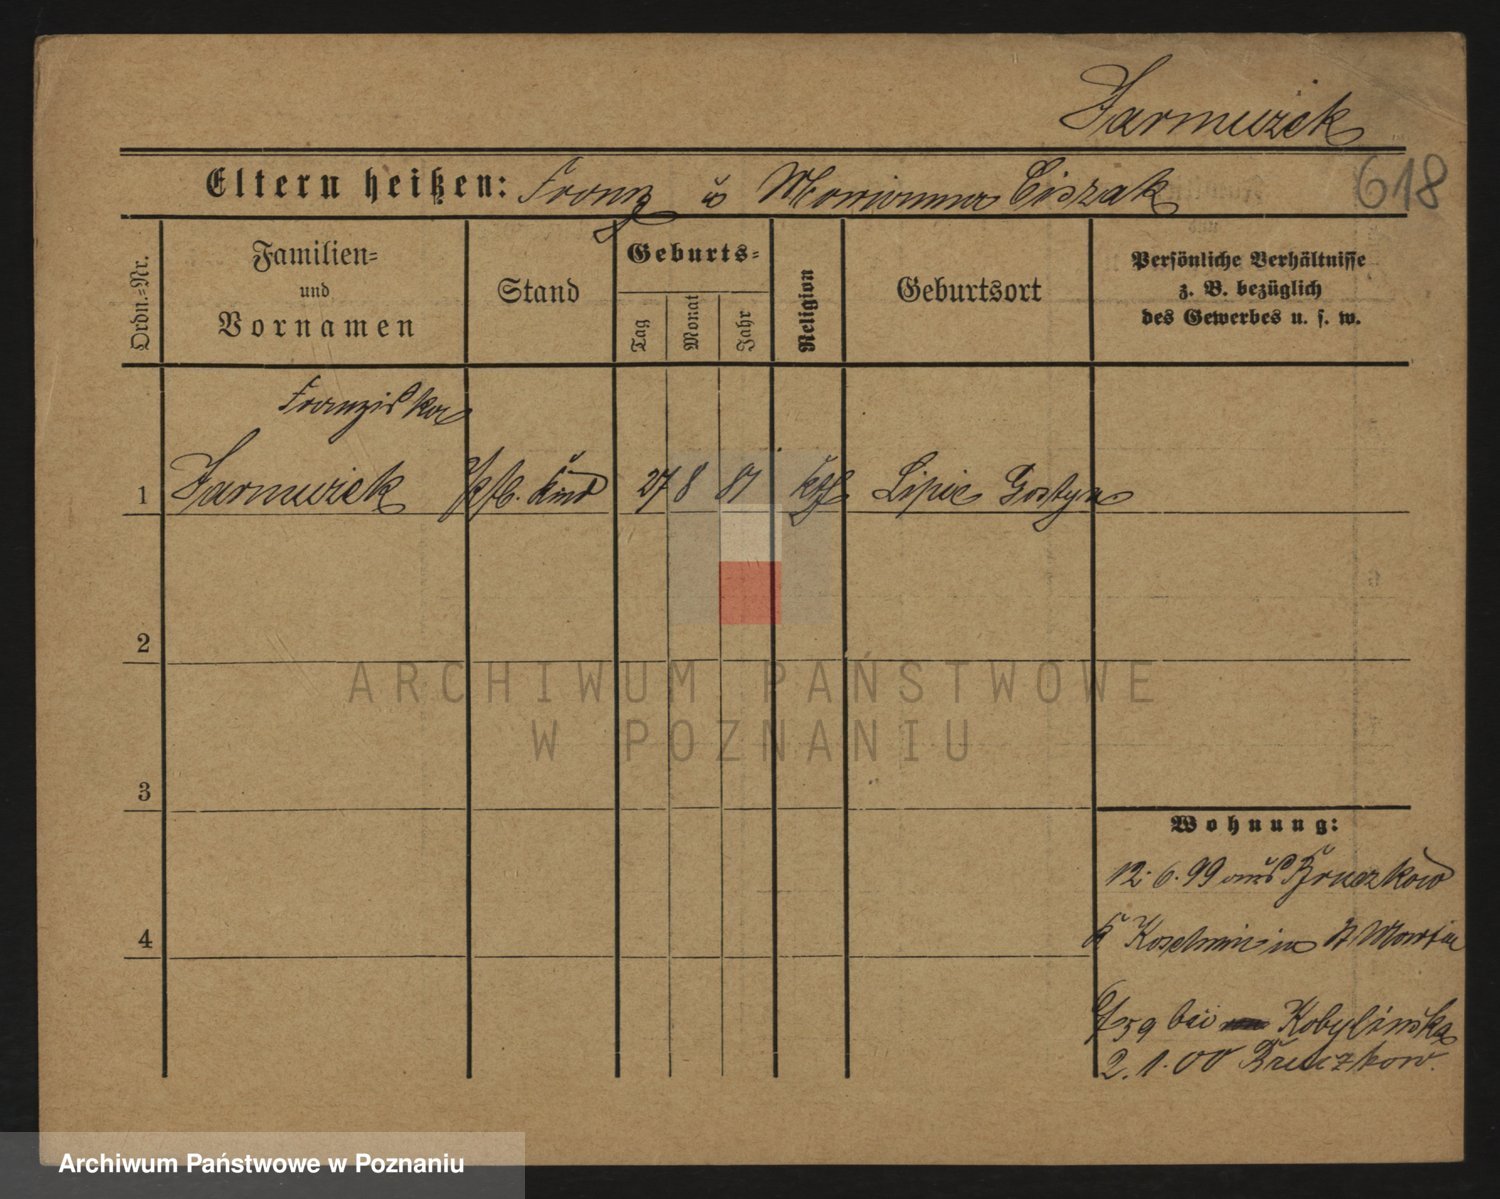 Jarmuzek
Eltern heißen: Franz u Marianna Ciszak
618
Ordn.=Nr.
Familien=
und
Vornamen
Stand
Geburts=
Tag
Monat
Jahr
Religion
Geburtsort
Persönliche Verhältnisse
z. B. bezüglich
des Gewerbes u. s. w.
Franziska
1 Jarmuzek 27 8 81 Lipie Gostyn
2
3
4
Wohnung:
12.6.99 aus Bruczkow
Koschmin in St Martin
59 bei Kobylinska
2.1.00 Bruczkow.
ARCHIWUM PAŃSTWOWE
W POZNANIU
Archiwum Państwowe w Poznaniu